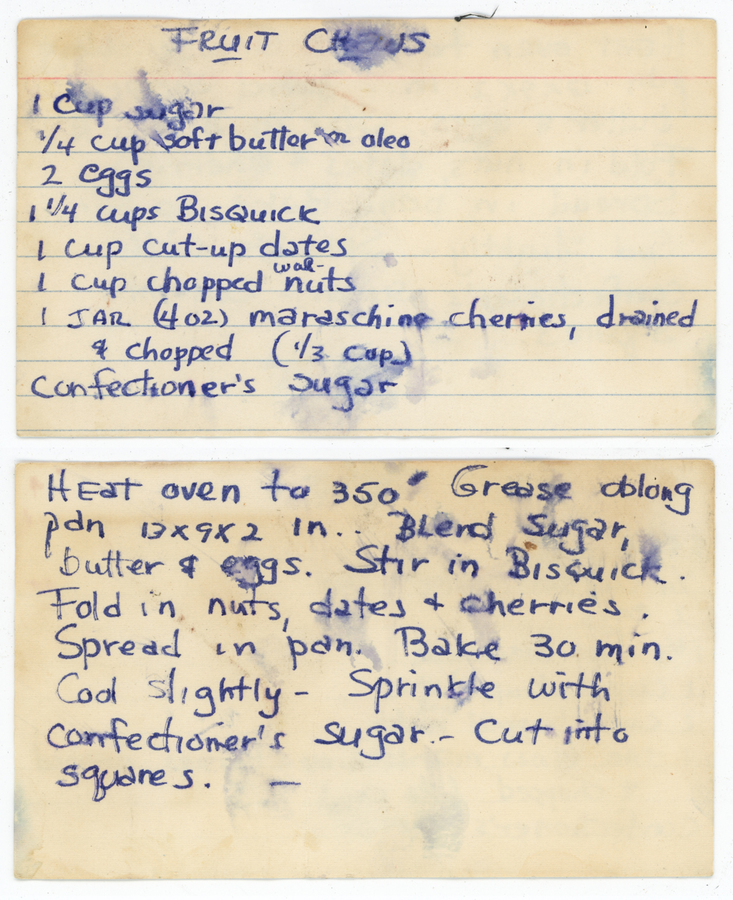 FRUIT CHEWS
1 Cup sugar
1/4 cup soft butter or oleo
2 eggs
1 1/4 cups BISQUICK
1 cup cut-up dates
1 cup chopped wal-nuts
1 JAR (4 oz) maraschino cherries, drained
& chopped (1/3 cup)
Confectioner's sugar
HEat oven to 350° Grease oblong
pan 13x9x2 in. Blend Sugar,
butter & eggs. Stir in Bisquick.
Fold in nuts, dates + cherries.
Spread in pan. Bake 30 min.
Cool slightly - Sprinkle with
confectioner's sugar. - Cut into
squares. —